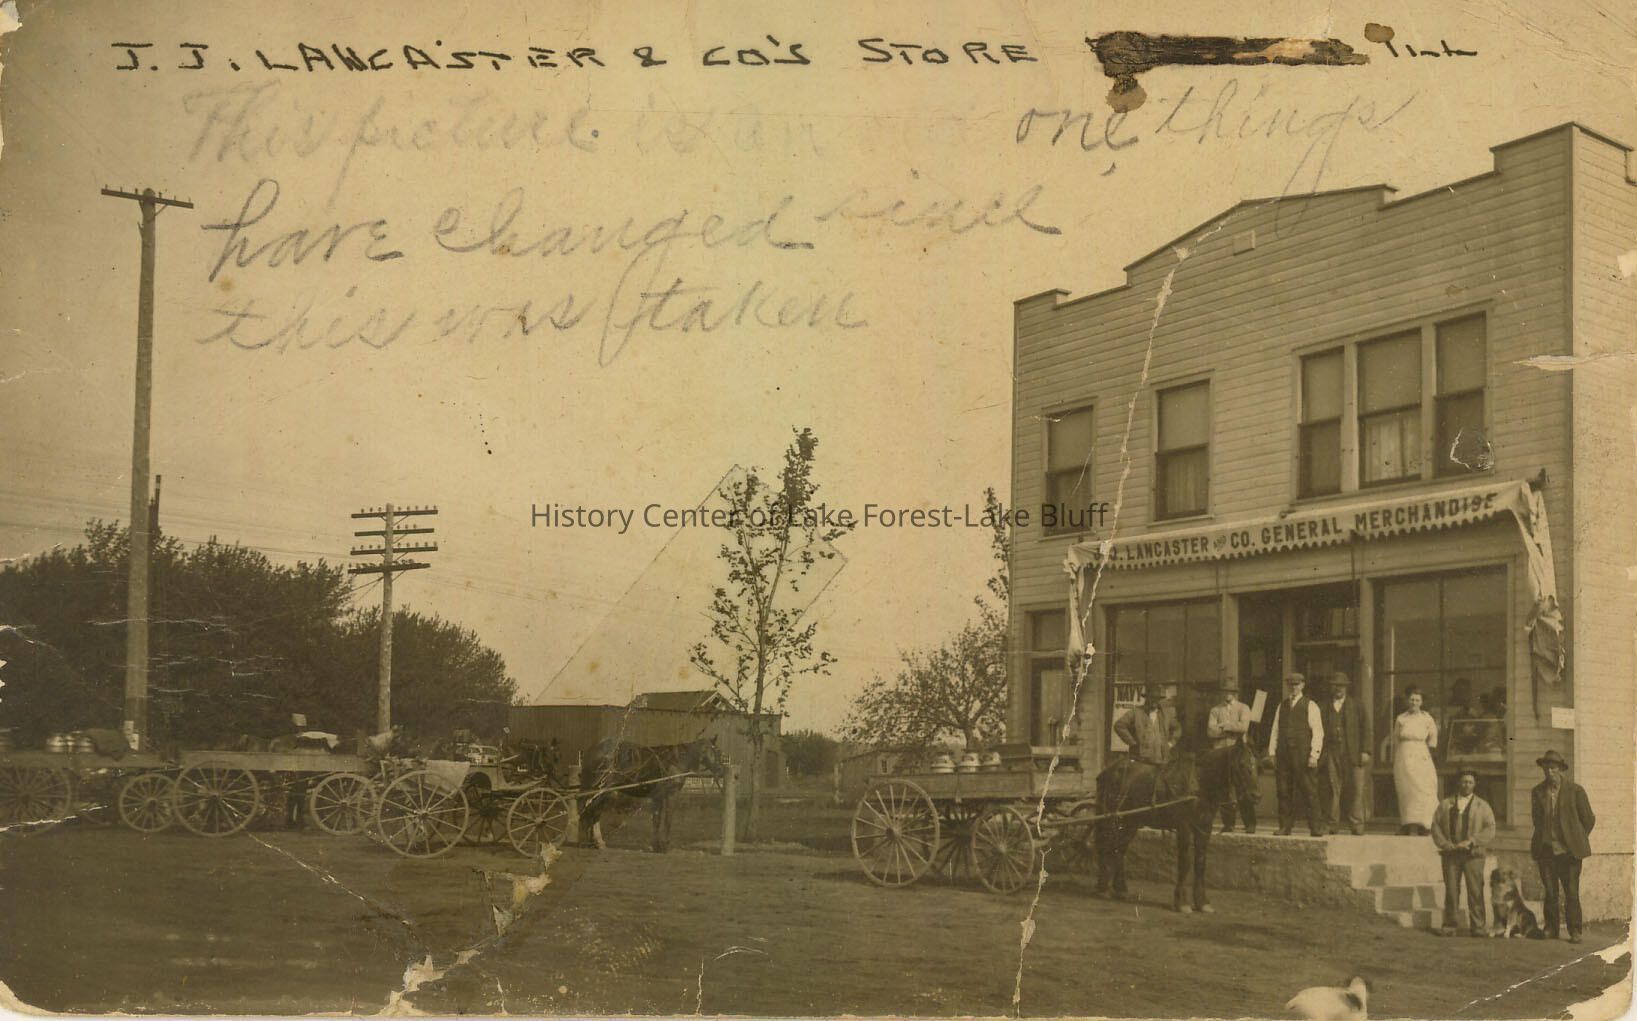 J. J. LANCASTER & CO'S STORE ILL
This picture is an one things
have changed since
this was taken
History Center of Lake Forest-Lake Bluff
J. LANCASTER AND CO. GENERAL MERCHANDISE
NAVY